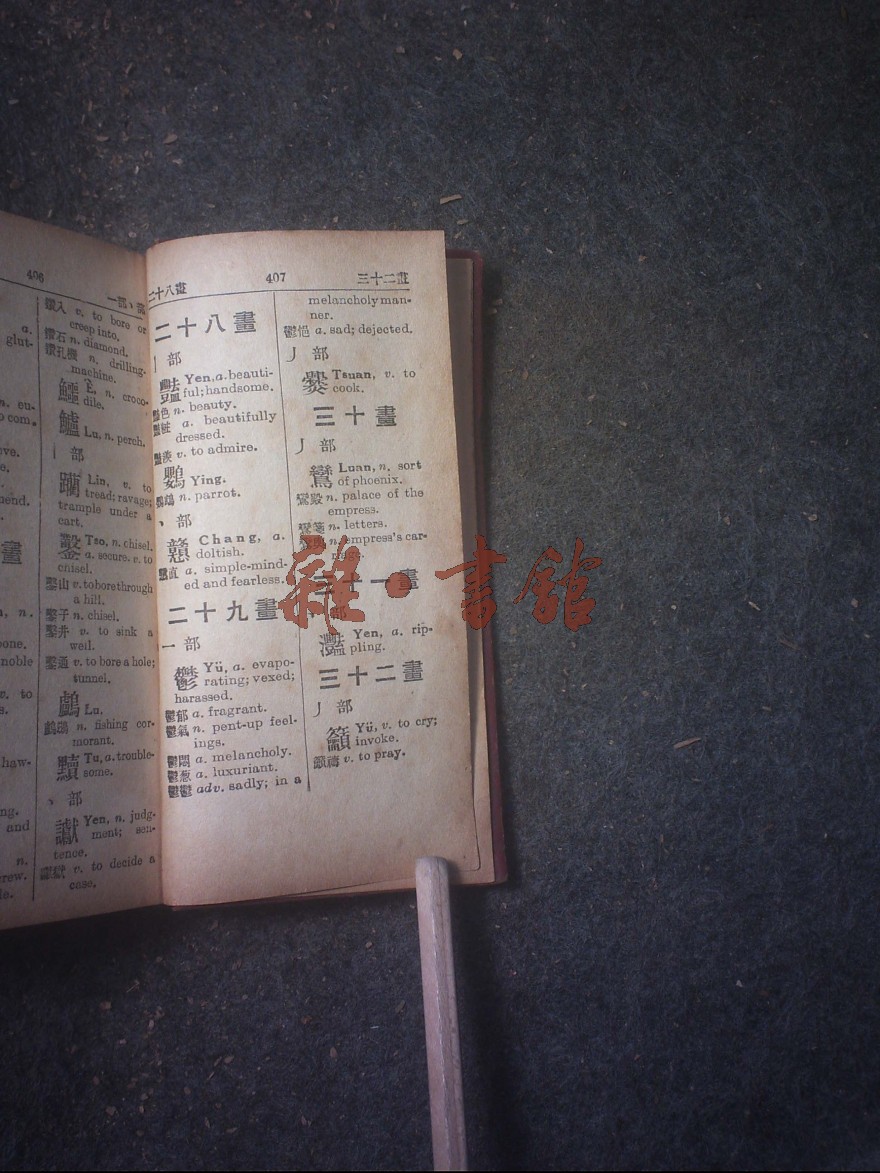 406
一部丶部
a.
glut-
n. eu-
o com-
ove.
e.
pend.
畫
n, n.
bone.
noble
v. to
s.
haw-
ng.
and
n.
rew.
le.
鑽入 v. to bore or
creep into.
鑽石 n. diamond.
鑽孔機 n. drilling-
machine.
鱷 E, n. croco-
dile.
鱸 Lu, n. perch.
丨部
躪 Lin, v. to
tread; ravage;
trample under a
cart.
鑿 Tso, n. chisel.
a. secure. v. to
chisel.
鑿山 v. to bore through
a hill.
鑿子 n. chisel.
鑿井 v. to sink a
well.
鑿通 v. to bore a hole;
tunnel.
鸕 Lu,
鸕鶿 n. fishing cor-
morant.
黷 Tu, a. trouble-
some.
丶部
讞 Yen, n. judg-
ment; sen-
tence.
讞獄 v. to decide a
case.
二十八畫 407 三十二畫
二十八畫
丨部
豔 Yen, a. beauti-
ful; handsome.
豔色 n. beauty.
豔粧 a. beautifully
dressed.
豔羨 v. to admire.
鸚 Ying.
鸚鵡 n. parrot.
丶部
戇 Chang, a.
doltish.
戇直 a. simple-mind-
ed and fearless.
二十九畫
一部
鬱 Yü, a. evapo-
rating; vexed;
harassed.
鬱郁 a. fragrant.
鬱氣 n. pent-up feel-
ings.
鬱悶 a. melancholy.
鬱葱 a. luxuriant.
鬱鬱 adv. sadly; in a
melancholy man-
ner.
鬱悒 a. sad; dejected.
丿部
爨 Tsuan, v. to
cook.
三十畫
丿部
鸞 Luan, n. sort
of phoenix.
鸞殿 n. palace of the
empress.
鸞箋 n. letters.
n. empress's car-
riage.
三十一畫
部
灩 Yen, a. rip-
pling.
三十二畫
丿部
籲 Yü, v. to cry;
invoke.
籲禱 v. to pray.
雜·書館